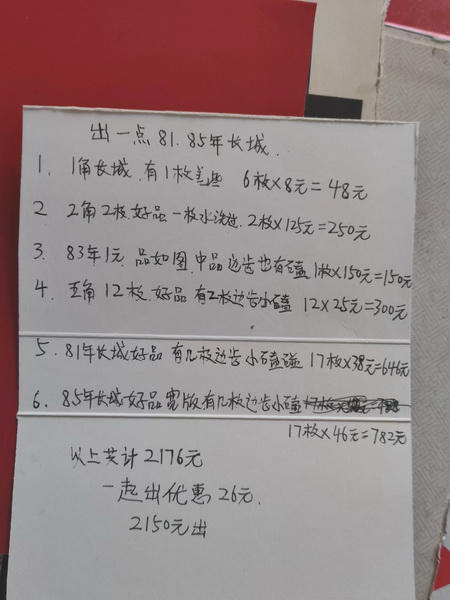 出一点81.85年长城.
1. 1角长城.有1枚差些 6枚×8元=48元
2 2角2枚.好品.一枚水洗过.2枚×125元=250元
3. 83年1元.品如图.中品边齿也有磕 1枚×150元=150元
4. 五角12枚.好品 有2枚边齿小磕 12×25元=300元
5.81年长城好品 有几枚边齿小磕碰 17枚×38元=646元
6. 85年长城好品宽版有几枚边齿小磕
17枚×46元=782元
以上共计2176元
一起出优惠26元.
2150元出